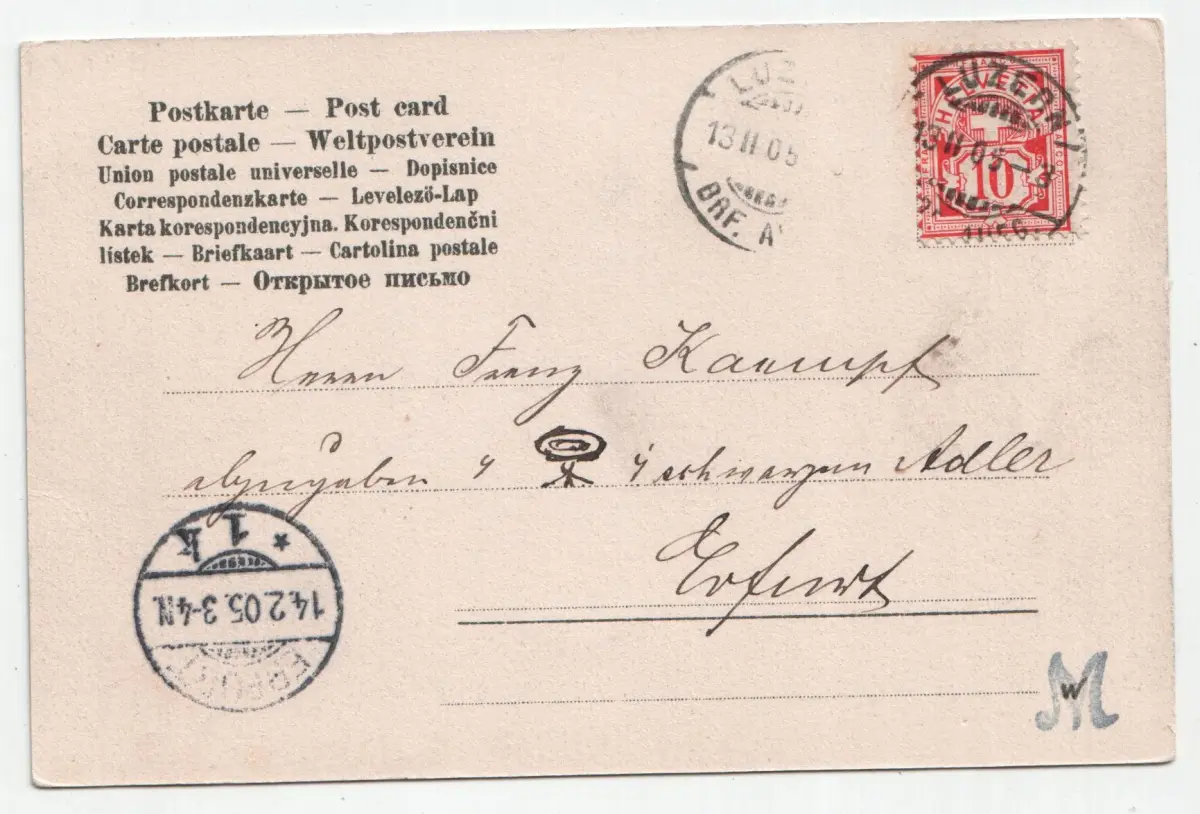 Postkarte — Post card
Carte postale — Weltpostverein
Union postale universelle — Dopisnice
Correspondenzkarte — Levelező-Lap
Karta korespondencyjna. Korespondenční
lístek — Briefkaart — Cartolina postale
Brefkort — Открытое письмо
LUZ
13 II 05
BRF. A
HELVETIA
10
LUZERN
13 II 05 - 8
Herrn Franz Kaempf
abzugeben schwarzen Adler
Erfurt
* 1 k
14.2.05. 3-4N.
ERFURT
M
W